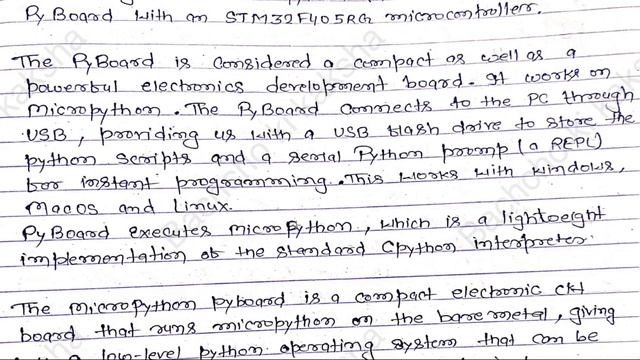 PyBoard with an STM32F405RG microcontroller.
The PyBoard is considered a compact as well as a
powerful electronics development board. It works on
micropython. The PyBoard connects to the PC through
USB, providing us with a USB flash drive to store the
python scripts and a serial Python promp (a REPL)
for instant programming. This works with windows,
MacOS and Linux.
PyBoard executes micropython, which is a lightweight
implementation of the standard CPython interpreter.
The micropython pyboard is a compact electronic ckt
board that runs micropython on the bare metal, giving
low-level python operating system that can be